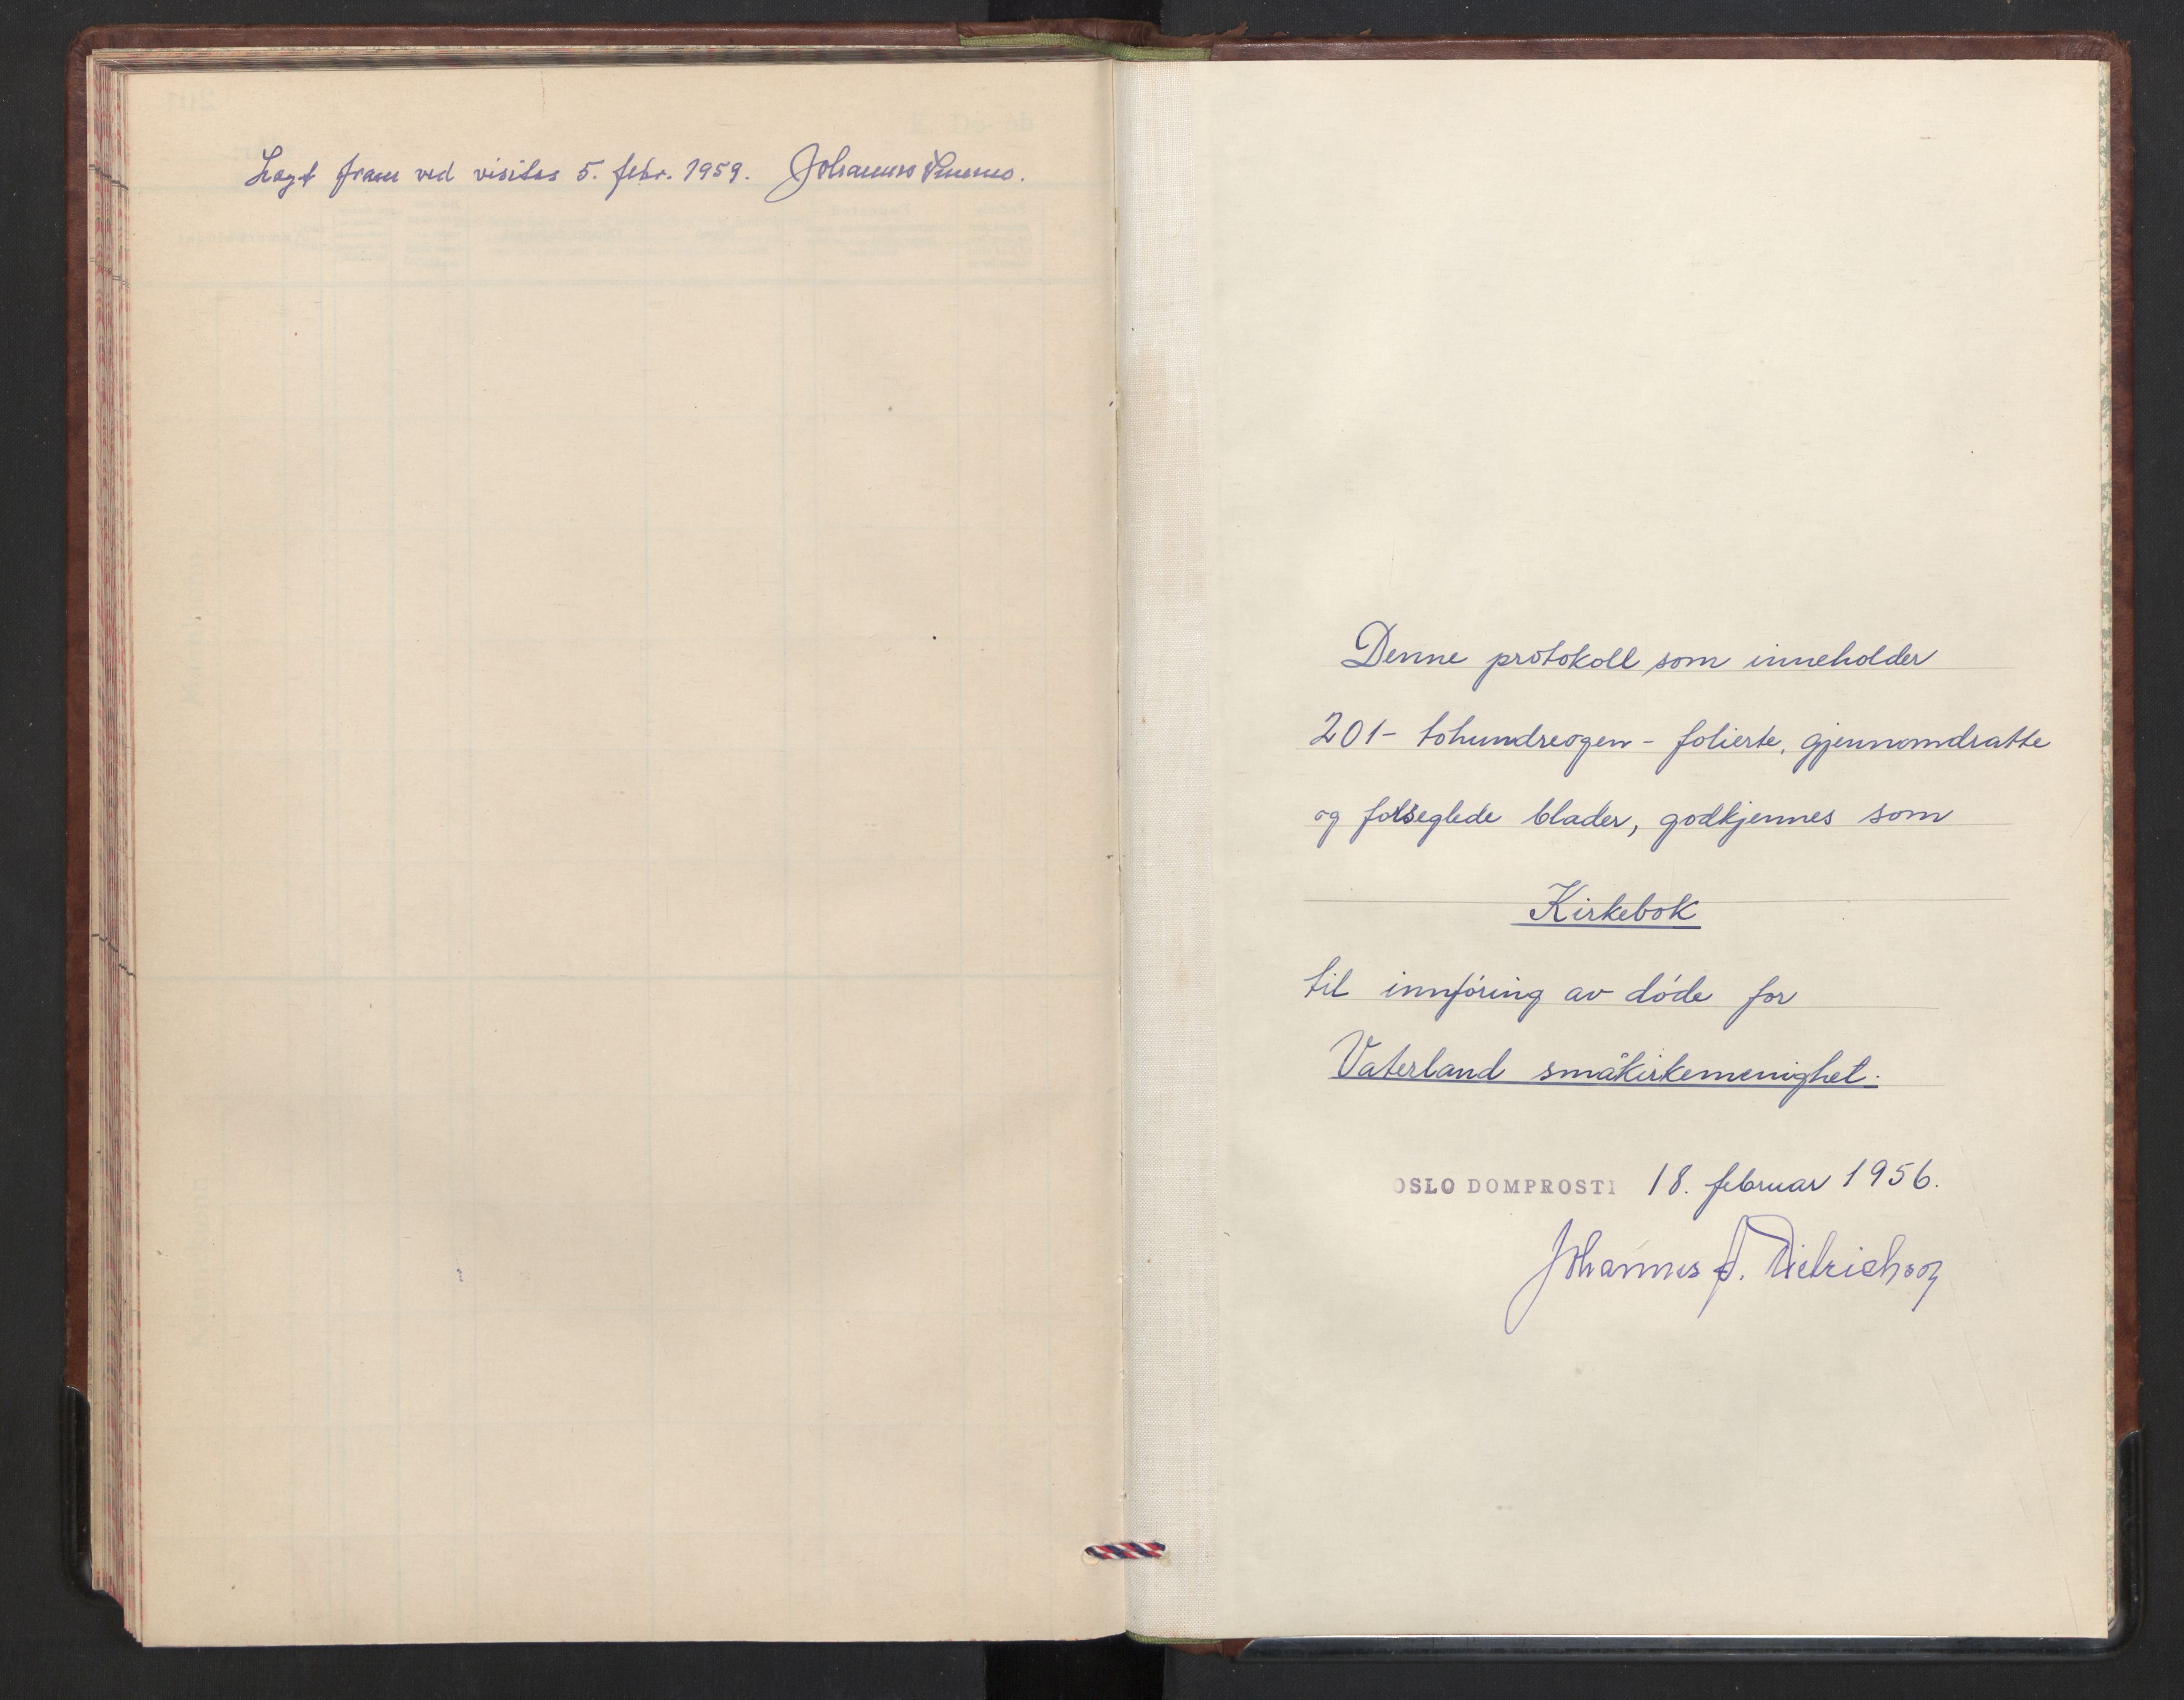 Lagt fram ved visitas 5. febr. 1959. Johannes Smemo.
Denne protokoll som inneholder
201 - tohundreogen - folierte, gjennomdratte
og forseglede blader, godkjennes som
Kirkebok
til innføring av døde for
Vaterland småkirkemenighet.
OSLO DOMPROSTI 18. februar 1956.
Johannes J. Dietrichson